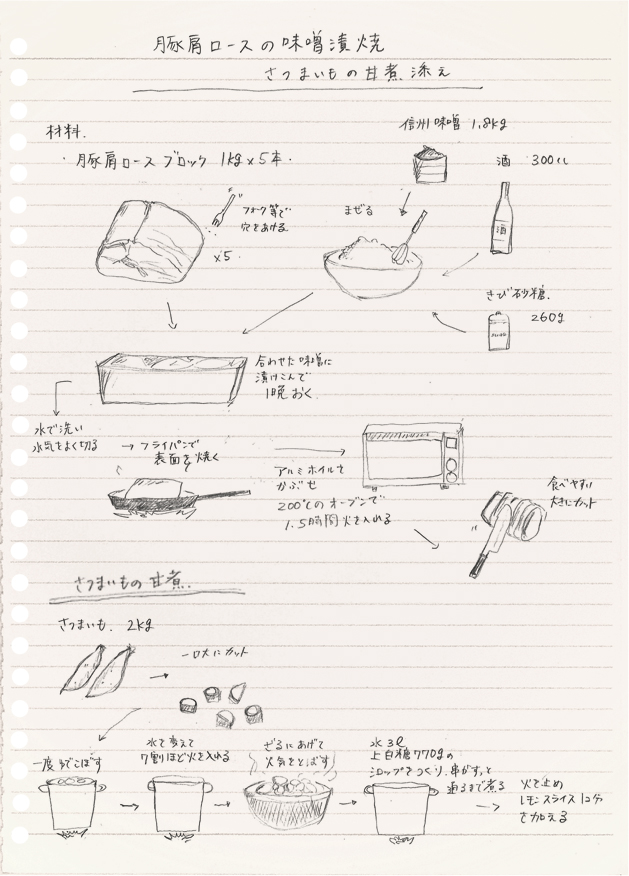 豚肩ロースの味噌漬焼
さつまいもの甘煮 添え
材料.
・豚肩ロース ブロック 1kg×5本.
信州味噌 1.8kg
酒 300cc
フォーク等で
穴をあける
×5
まぜる
酒
きび砂糖.
260g
合わせた味噌に
漬けこんで
1晩おく
水で洗い
水気をよく切る
→フライパンで
表面を焼く
アルミホイルを
かぶせ
200℃のオーブンで
1.5時間火を入れる
食べやすい
大きにカット
さつまいもの甘煮.
さつまいも. 2kg
一口大にカット
一度ゆでこぼす
水を変えて
7割ほど火を入れる
ざるにあげて
水気をとばす
水3ℓ
上白糖770gの
シロップをつくり、串がすっと
通るまで煮る
火を止め
レモンスライス1コ分
を加える